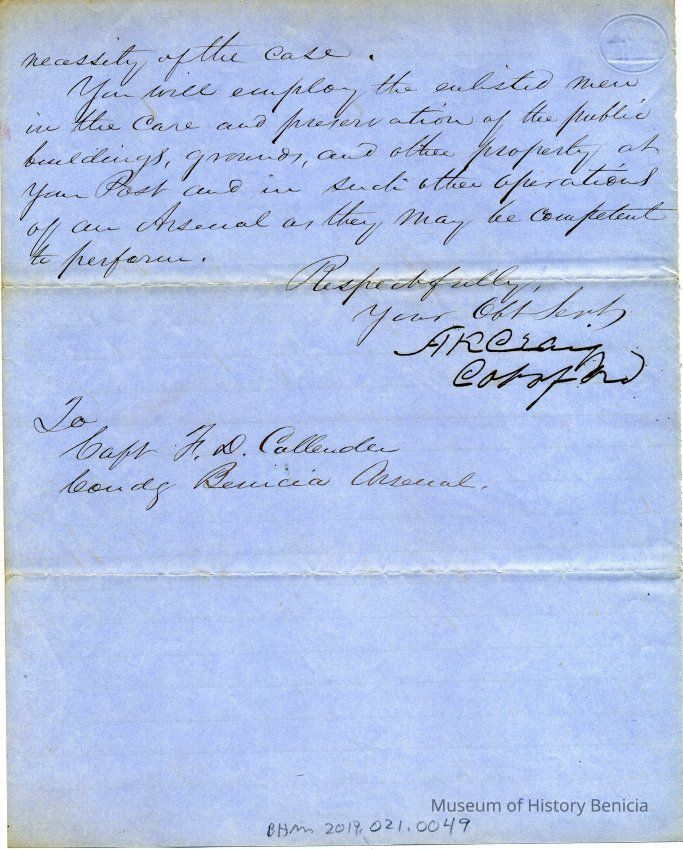 necessity of the case.
You will employ the enlisted men
in the care and preservation of the public
buildings, grounds, and other property at
your Post and in such other operations
of an Arsenal as they may be competent
to perform.
Respectfully,
Your Obt Servt
HKCraig
Col of Ord
To
Capt F. D. Callender
Comdg Benicia Arsenal.
Museum of History Benicia
BHM 2019.021.0049